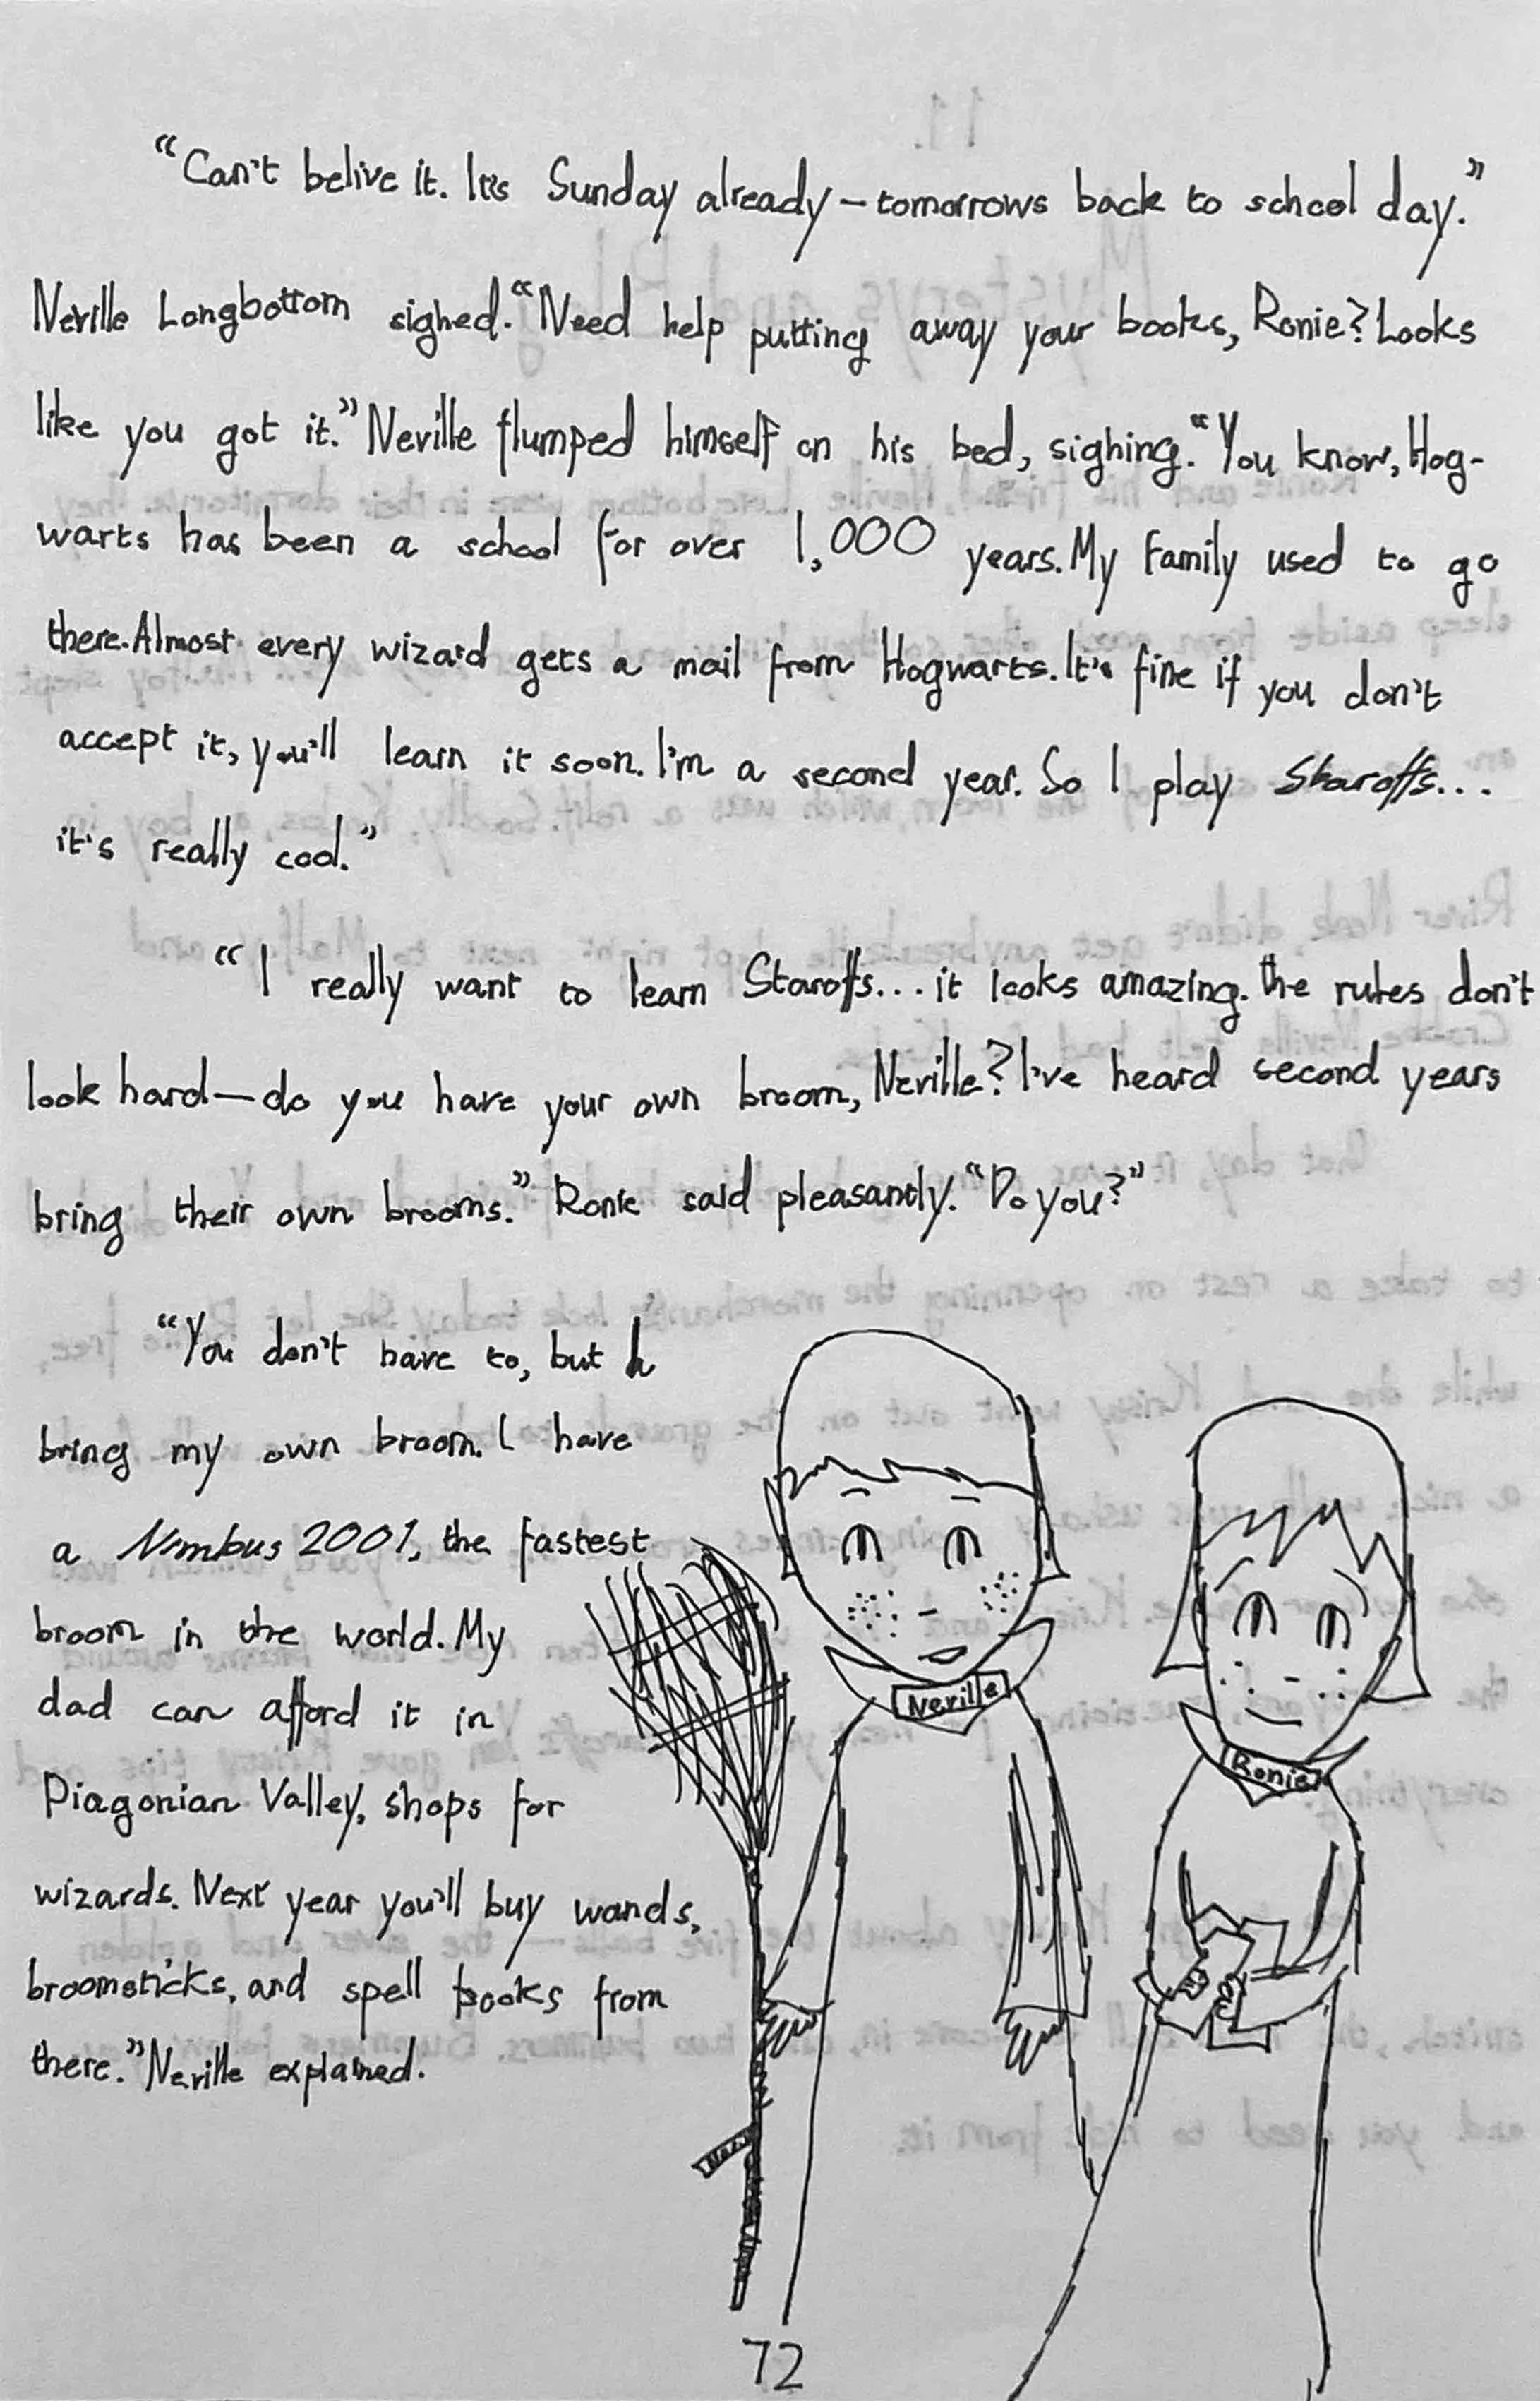 “Can't belive it. It's Sunday already – tomorrows back to school day.”
Neville Longbottom sighed. “Need help putting away your books, Ronie? Looks
like you got it.” Neville flumped himself on his bed, sighing. “You know, Hog-
warts has been a school for over 1,000 years. My family used to go
there. Almost every wizard gets a mail from Hogwarts. It's fine if you don't
accept it, you'll learn it soon. I'm a second year. So I play Staroffs...
it's really cool.”
“I really want to learn Staroffs... it looks amazing. the rules don't
look hard — do you have your own broom, Neville? I've heard second years
bring their own brooms.” Ronie said pleasantly. “Do you?”
“You don't have to, but I
bring my own broom. I have
a Nimbus 2001, the fastest
broom in the world. My
dad can afford it in
Diagonian Valley, shops for
wizards. Next year you'll buy wands,
broomsticks, and spell books from
there.” Neville explained.
Neville
Ronie
72